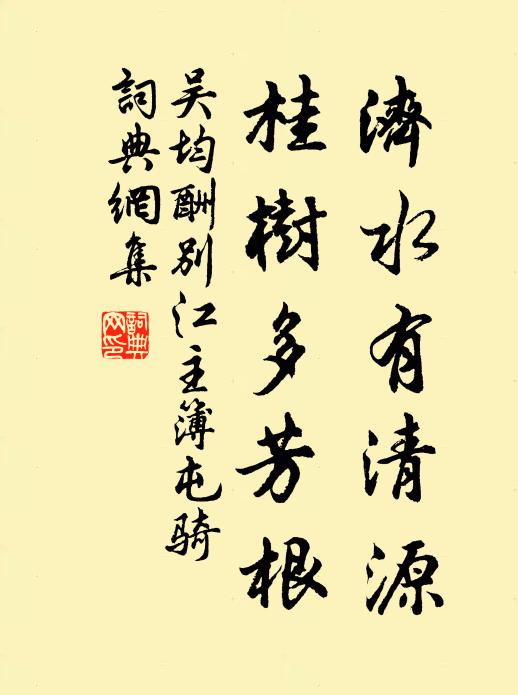 濟水有清源
桂樹多芳根
吴均酬别江主簿屯骑
詞典網集
詞典网印